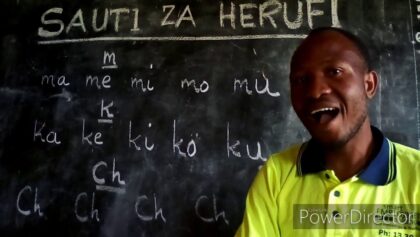 SAUTI ZA HERUFI
m
ma me mi mo mu
K
Ka ke ki ko ku
Ch
Ch Ch Ch Ch
Ph: 13 30
PowerDirector